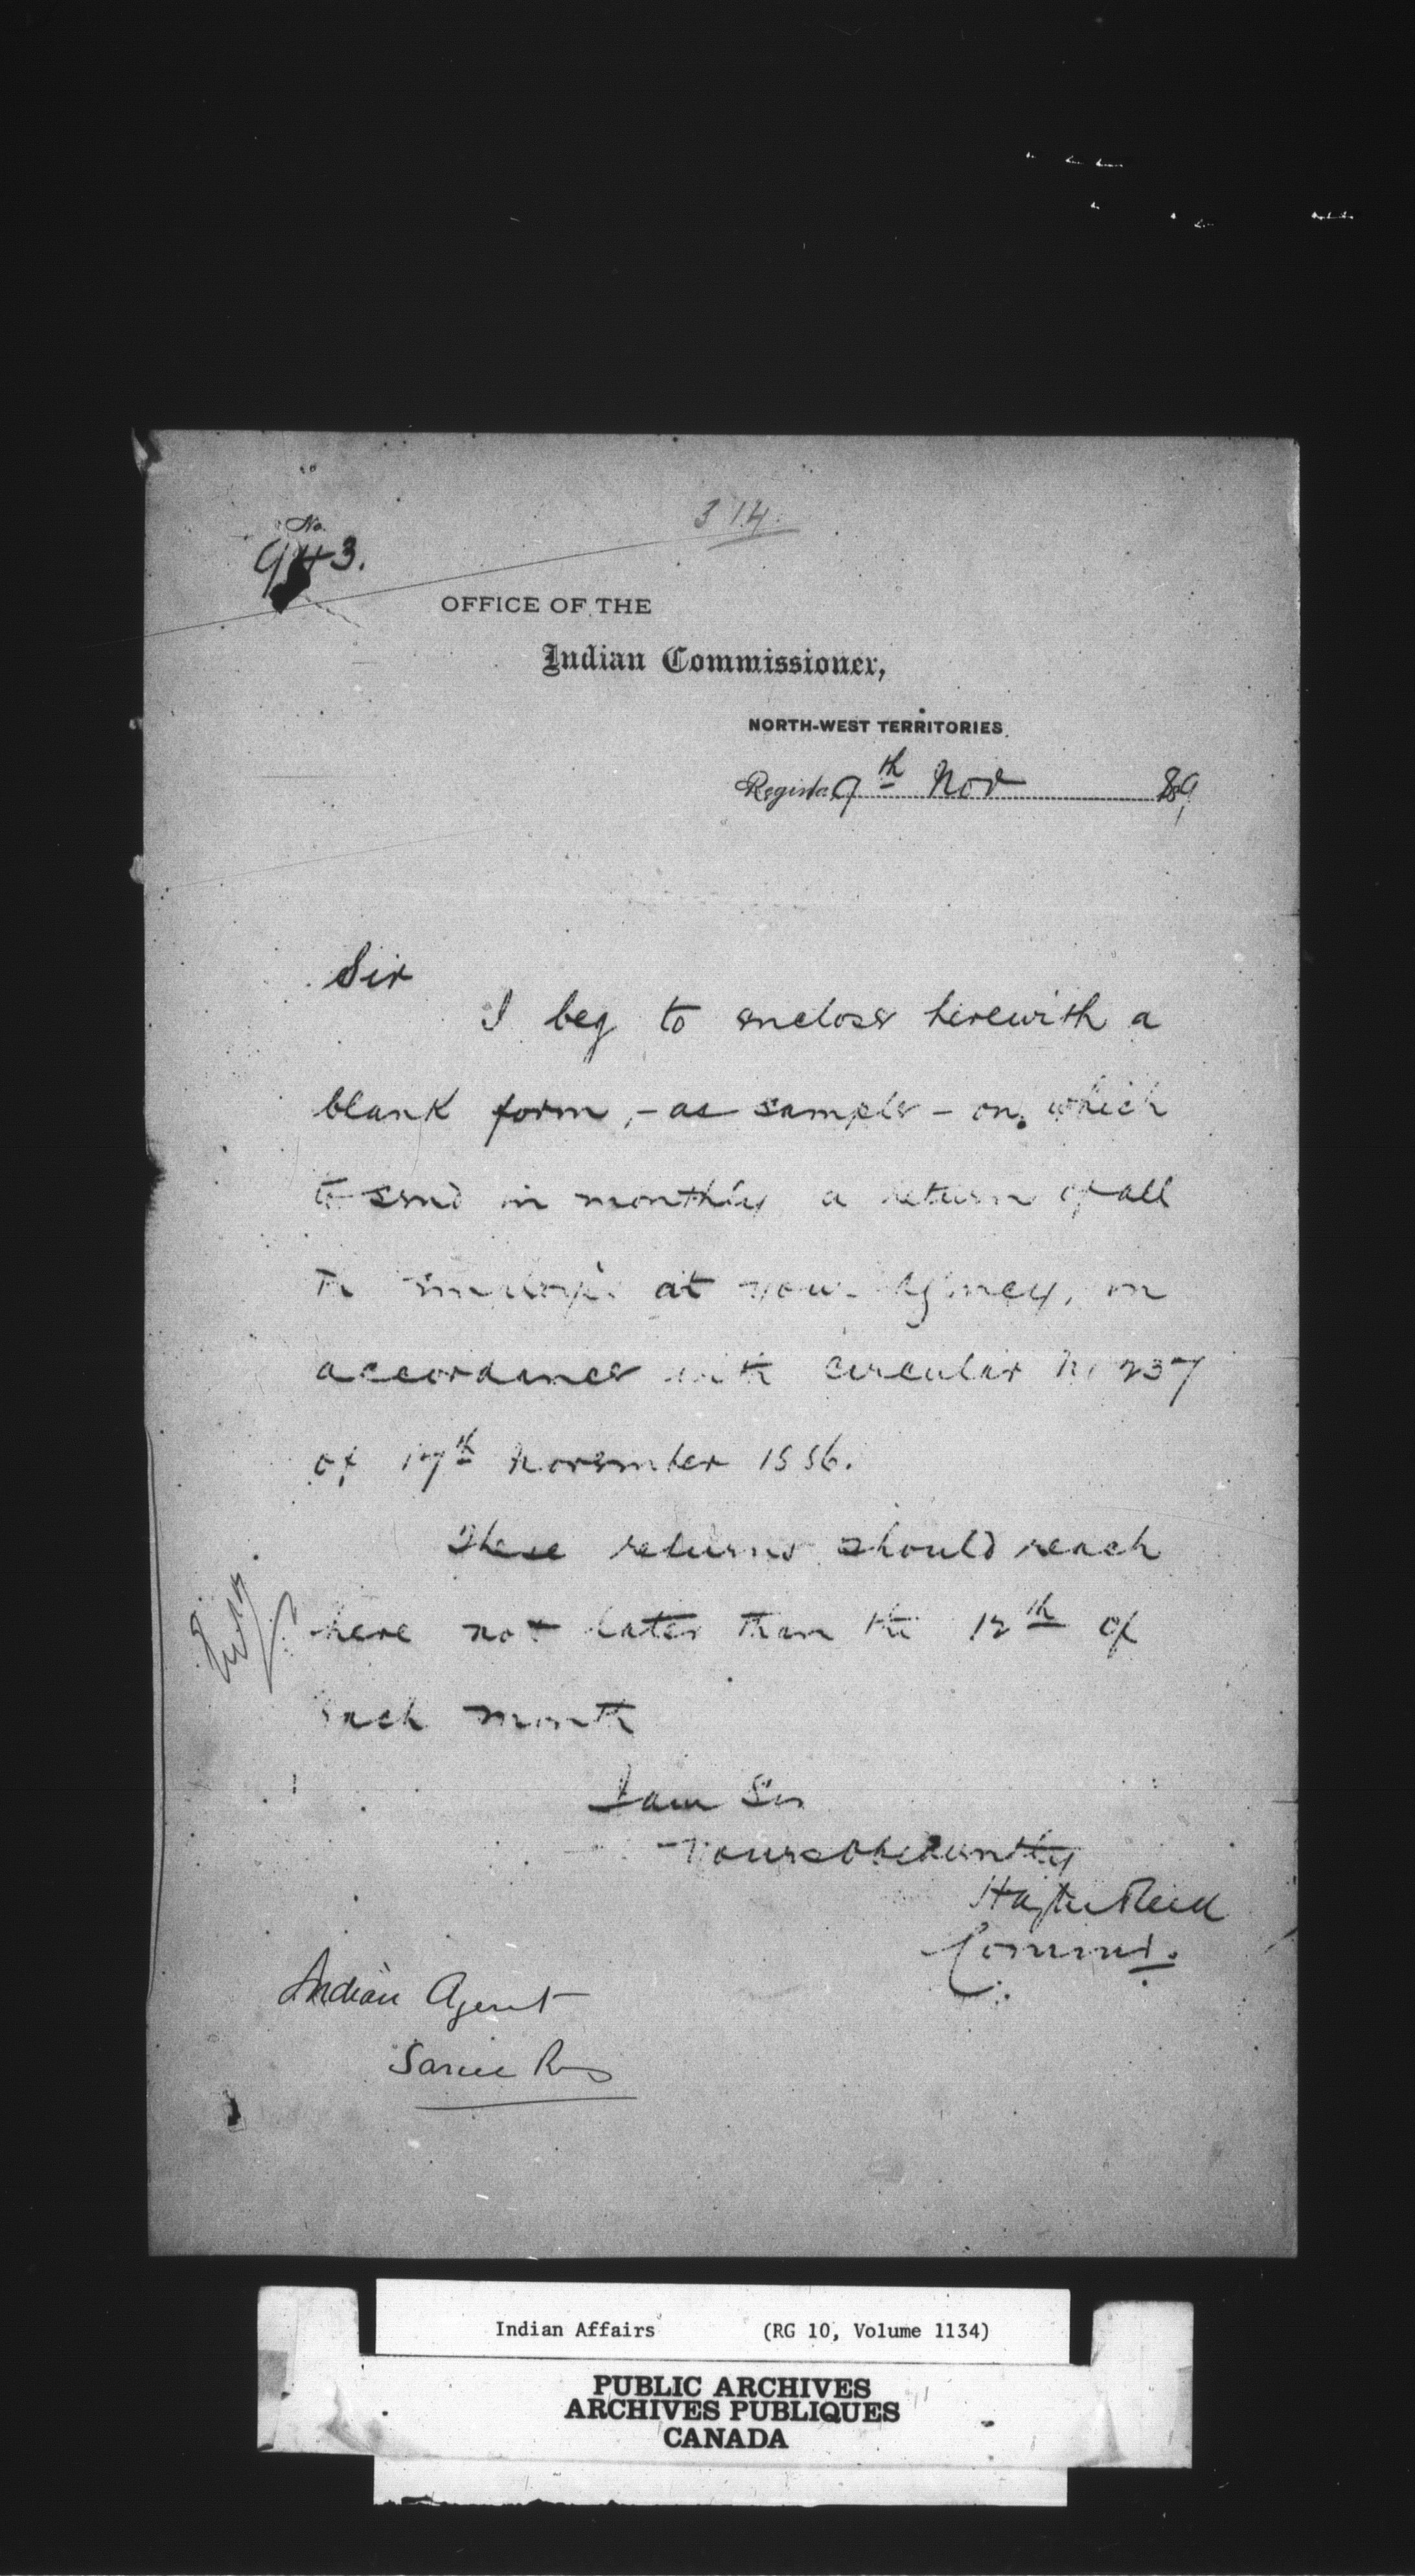 314.
No.
943.
OFFICE OF THE
Indian Commissioner,
NORTH-WEST TERRITORIES.
Regina 9th Nov 89
Sir
I beg to enclose herewith a
blank form, - as sample - on which
to send in monthly a return of all
the employés at your Agency, in
accordance with circular No 237
of 17th November 1886.
These returns should reach
here not later than the 12th of
each month
I am Sir
Yours obediently
Hayter Reed
Commr.
Indian Agent
Sarcee Res
Indian Affairs (RG 10, Volume 1134)
PUBLIC ARCHIVES
ARCHIVES PUBLIQUES
CANADA